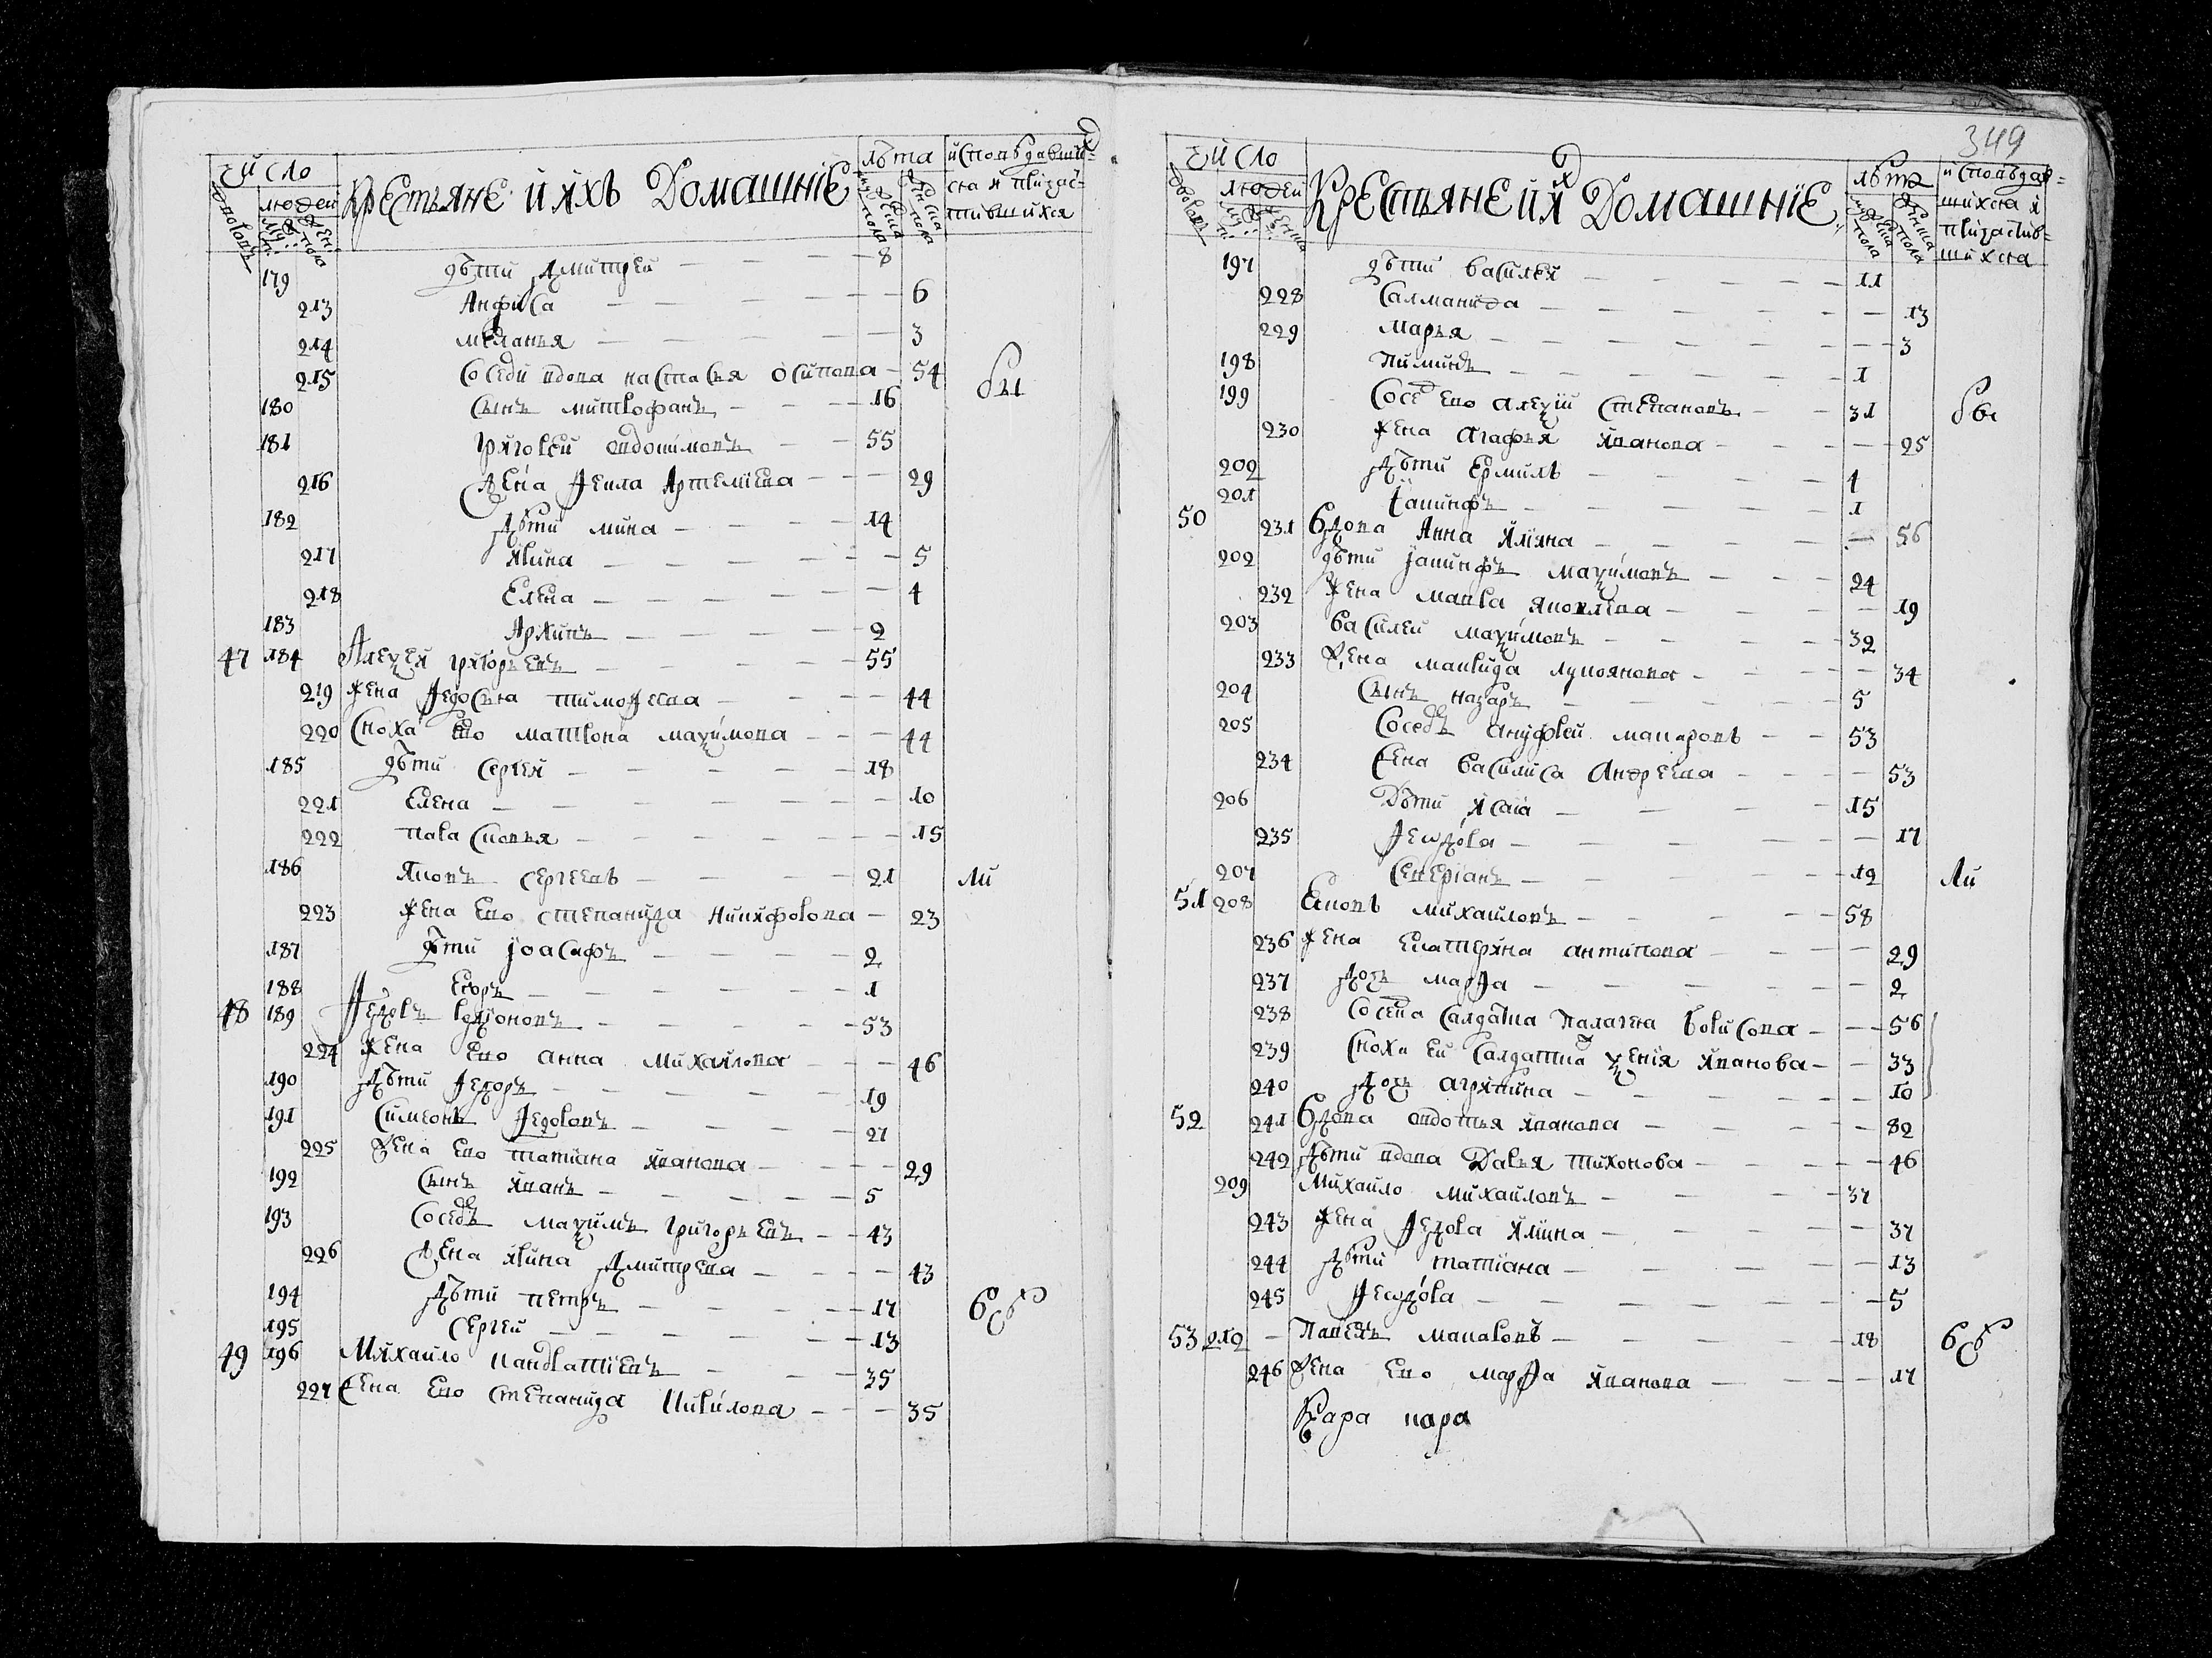 число
Крестьяне и ихъ Домашние
лѣта
исповѣдавши=
людей
дворовъ
муж: п:
жен: пола
мужеска пола
женска пола
хся и причас=
тившихся
179 дѣти Дмитреи 8
213 Анфиса 6
214 меланья 3
215 соседи вдова настасья осипова 54 бы
180 сынъ митрофанъ 16
181 григореи евдокимовъ 55
216 жена Фекла Артемиева 29
182 дѣти мина 14
217 ирина 5
218 Елена 4
183 Архипъ 2
47 184 Алеѯеи григорьевъ 55
219 жена Федосья тимофеева 44
220 сноха ево матрона маѯимова 44
185 дѣти сергеи 18
221 елена 10
222 парасковья 15
186 яковъ сергеевъ 21 ли
223 жена ево степанида никифорова 23
187 дѣти iоасафъ 2
188 егоръ 1
48 189 Федоръ родионовъ 53
224 жена ево анна михаилова 46
190 дѣти Федоръ 19
191 симеонъ Федоровъ 27
225 жена ево татиана иванова 29
192 сынъ иванъ 5
193 соседъ маѯимъ григорьевъ 43
226 жена ирина дмитрева 43
194 дѣти петръ 17
195 сергеи 13
49 196 Михаило кандратиевъ 35
227 жена ево степанида кирилова 35
349
число
Крестьяне и их Домашние
лѣта
исповѣдав=
людей
дворовъ
муж: п:
женска
мужеска пола
женска пола
шихся и
причастив=
шихся
197 дѣти василеи 11
228 саламанида 13
229 марья 3
198 пиминъ 1
199 сосед ево алеѯии степановъ 31 бы
230 жена агафья иванова 25
202 дѣти ермилъ 4
201 iакинфъ 1
50 231 вдова Анна илина 56
202 дѣти iакинфъ маѯимовъ 24
232 жена мавра яковлева 19
203 василеи маѯимовъ 32
233 жена маврида лукоянова 34
204 сынъ назаръ 5
205 соседъ ануфреи макаровъ 53
234 жена василиса андреева 53
206 дѣти исаiа 15
235 Феѡдора 17
207 севериянъ 12 ли
51 208 Емовъ михаиловъ 58
236 жена екатерина антипова 29
237 дочь марфа 2
238 соседка салдатка палагея борисова 56
239 сноха еи салдатка ѯения иванова 33
240 дочь агрипина 10
52 241 вдова авдотья иванова 82
242 дѣти вдова Дарья тихонова 46
209 михаило михаиловъ 37
243 жена Федора илина 37
244 дѣти татиана 13
245 Феѡдора 5
53 210 павелъ макаровъ 18
246 жена ево марфа иванова 17